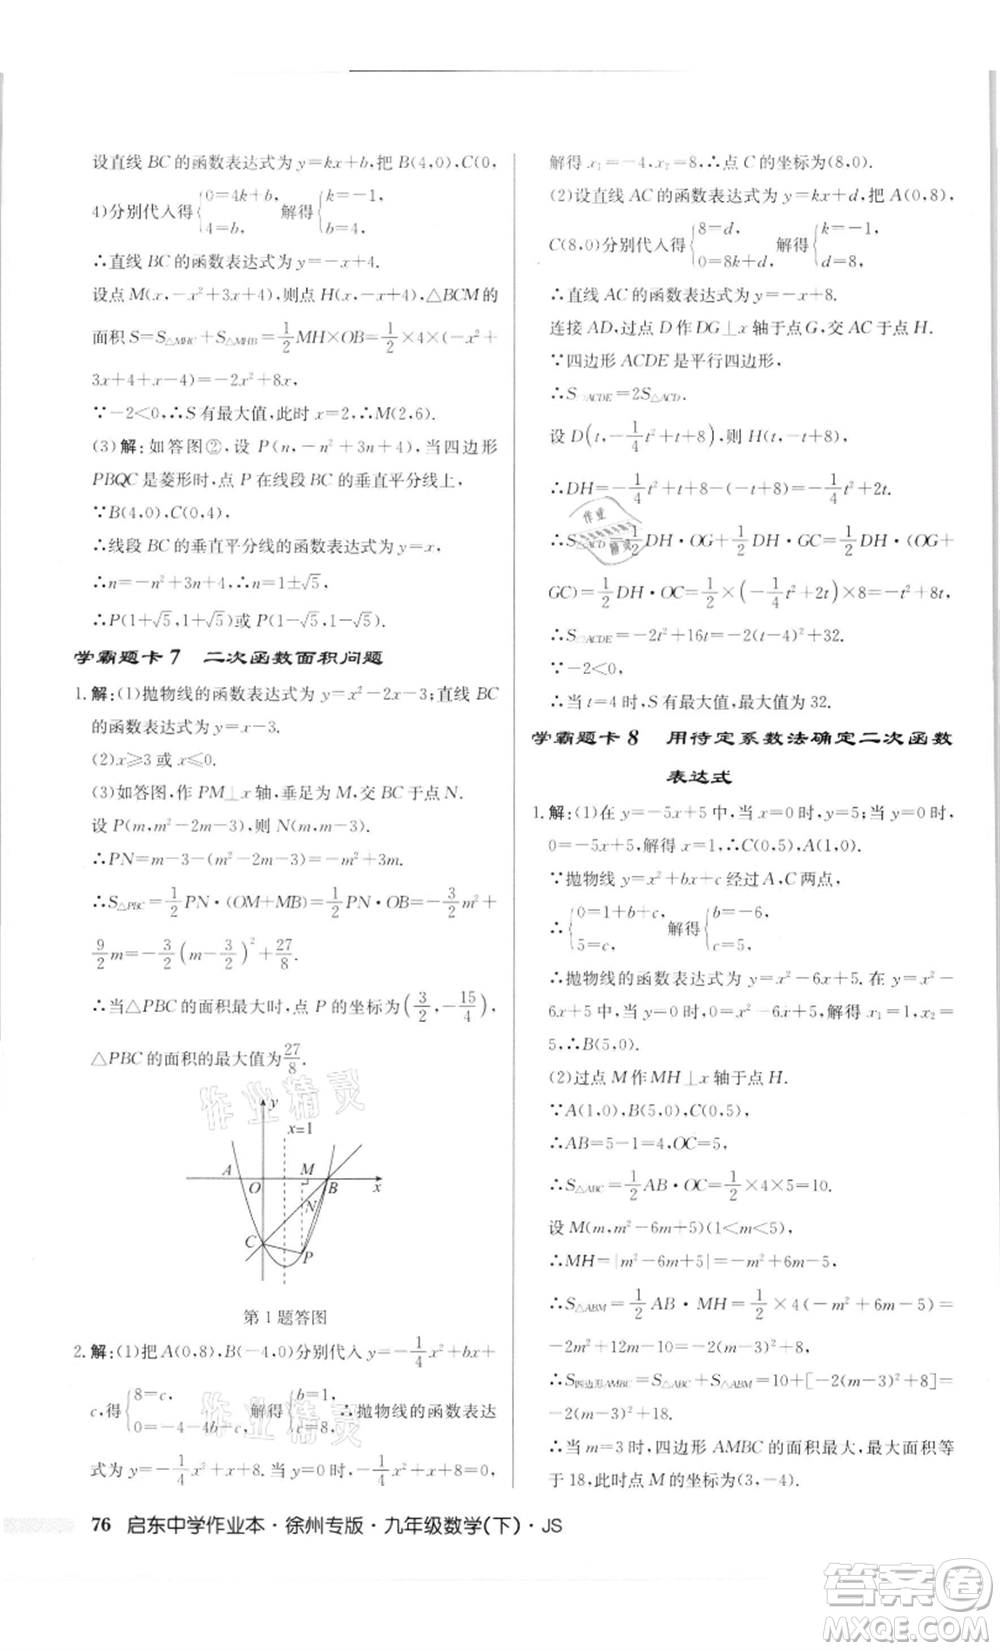 设直线 BC 的函数表达式为 y=kx+b,把 B(4,0),C(0,
4)分别代入得{0=4k+b, 4=b, 解得{k=-1, b=4.
∴直线 BC 的函数表达式为 y=-x+4.
设点 M(x,-x²+3x+4),则点 H(x,-x+4),△BCM 的
面积 S=S△MHC+S△MHB=1/2 MH×OB=1/2×4×(-x²+
3x+4+x-4)=-2x²+8x.
∵-2<0,∴S 有最大值,此时 x=2,∴M(2,6).
(3)解:如答图②,设 P(n,-n²+3n+4),当四边形
PBQC 是菱形时,点 P 在线段 BC 的垂直平分线上,
∵B(4,0),C(0,4),
∴线段 BC 的垂直平分线的函数表达式为 y=x,
∴n=-n²+3n+4,∴n=1±√5,
∴P(1+√5,1+√5)或 P(1-√5,1-√5).
学霸题卡 7 二次函数面积问题
1.解:(1)抛物线的函数表达式为 y=x²-2x-3;直线 BC
的函数表达式为 y=x-3.
(2)x≥3 或 x≤0.
(3)如答图,作 PM⊥x 轴,垂足为 M,交 BC 于点 N.
设 P(m,m²-2m-3),则 N(m,m-3).
∴PN=m-3-(m²-2m-3)=-m²+3m.
∴S△PBC=1/2 PN·(OM+MB)=1/2 PN·OB=-3/2 m²+
9/2 m=-3/2(m-3/2)²+27/8.
∴当△PBC 的面积最大时,点 P 的坐标为(3/2,-15/4),
△PBC 的面积的最大值为27/8.
y
x=1
A O M B x
N
C P
第 1 题答图
2.解:(1)把 A(0,8),B(-4,0)分别代入 y=-1/4 x²+bx+
c,得{8=c, 0=-4-4b+c, 解得{b=1, c=8, ∴抛物线的函数表达
式为 y=-1/4 x²+x+8.当 y=0 时,-1/4 x²+x+8=0,
解得 x₁=-4,x₂=8,∴点 C 的坐标为(8,0).
(2)设直线 AC 的函数表达式为 y=kx+d,把 A(0,8),
C(8,0)分别代入得{8=d, 0=8k+d, 解得{k=-1, d=8,
∴直线 AC 的函数表达式为 y=-x+8.
连接 AD,过点 D 作 DG⊥x 轴于点 G,交 AC 于点 H.
∵四边形 ACDE 是平行四边形,
∴S▱ACDE=2S△ACD.
设 D(t,-1/4 t²+t+8),则 H(t,-t+8),
∴DH=-1/4 t²+t+8+t-8=-1/4 t²+2t.
∴S△ACD=1/2 DH·OG+1/2 DH·GC=1/2 DH·(OG+
GC)=1/2 DH·OC=1/2×(-1/4 t²+2t)×8=-t²+8t,
∴S▱ACDE=-2t²+16t=-2(t-4)²+32.
∵-2<0,
∴当 t=4 时,S 有最大值,最大值为 32.
学霸题卡 8 用待定系数法确定二次函数
表达式
1.解:(1)在 y=-5x+5 中,当 x=0 时,y=5;当 y=0 时,
0=-5x+5,解得 x=1,∴C(0,5),A(1,0).
∵抛物线 y=x²+bx+c 经过 A,C 两点,
∴{0=1+b+c, 5=c, 解得{b=-6, c=5,
∴抛物线的函数表达式为 y=x²-6x+5.在 y=x²-
6x+5 中,当 y=0 时,0=x²-6x+5,解得 x₁=1,x₂=
5,∴B(5,0).
(2)过点 M 作 MH⊥x 轴于点 H.
∵A(1,0),B(5,0),C(0,5),
∴AB=5-1=4,OC=5.
∴S△ABC=1/2 AB·OC=1/2×4×5=10.
设 M(m,m²-6m+5)(1<m<5),
∴MH=|m²-6m+5|=-m²+6m-5.
∴S△ABM=1/2 AB·MH=1/2×4(-m²+6m-5)=
-2m²+12m-10=-2(m-3)²+8.
∴S四边形AMBC=S△ABC+S△ABM=10+[-2(m-3)²+8]=
-2(m-3)²+18.
∴当 m=3 时,四边形 AMBC 的面积最大,最大面积等
于 18,此时点 M 的坐标为(3,-4).
76 启东中学作业本·徐州专版·九年级数学(下)·JS
作业精灵
作业精灵
答案卷
MXQE.COM